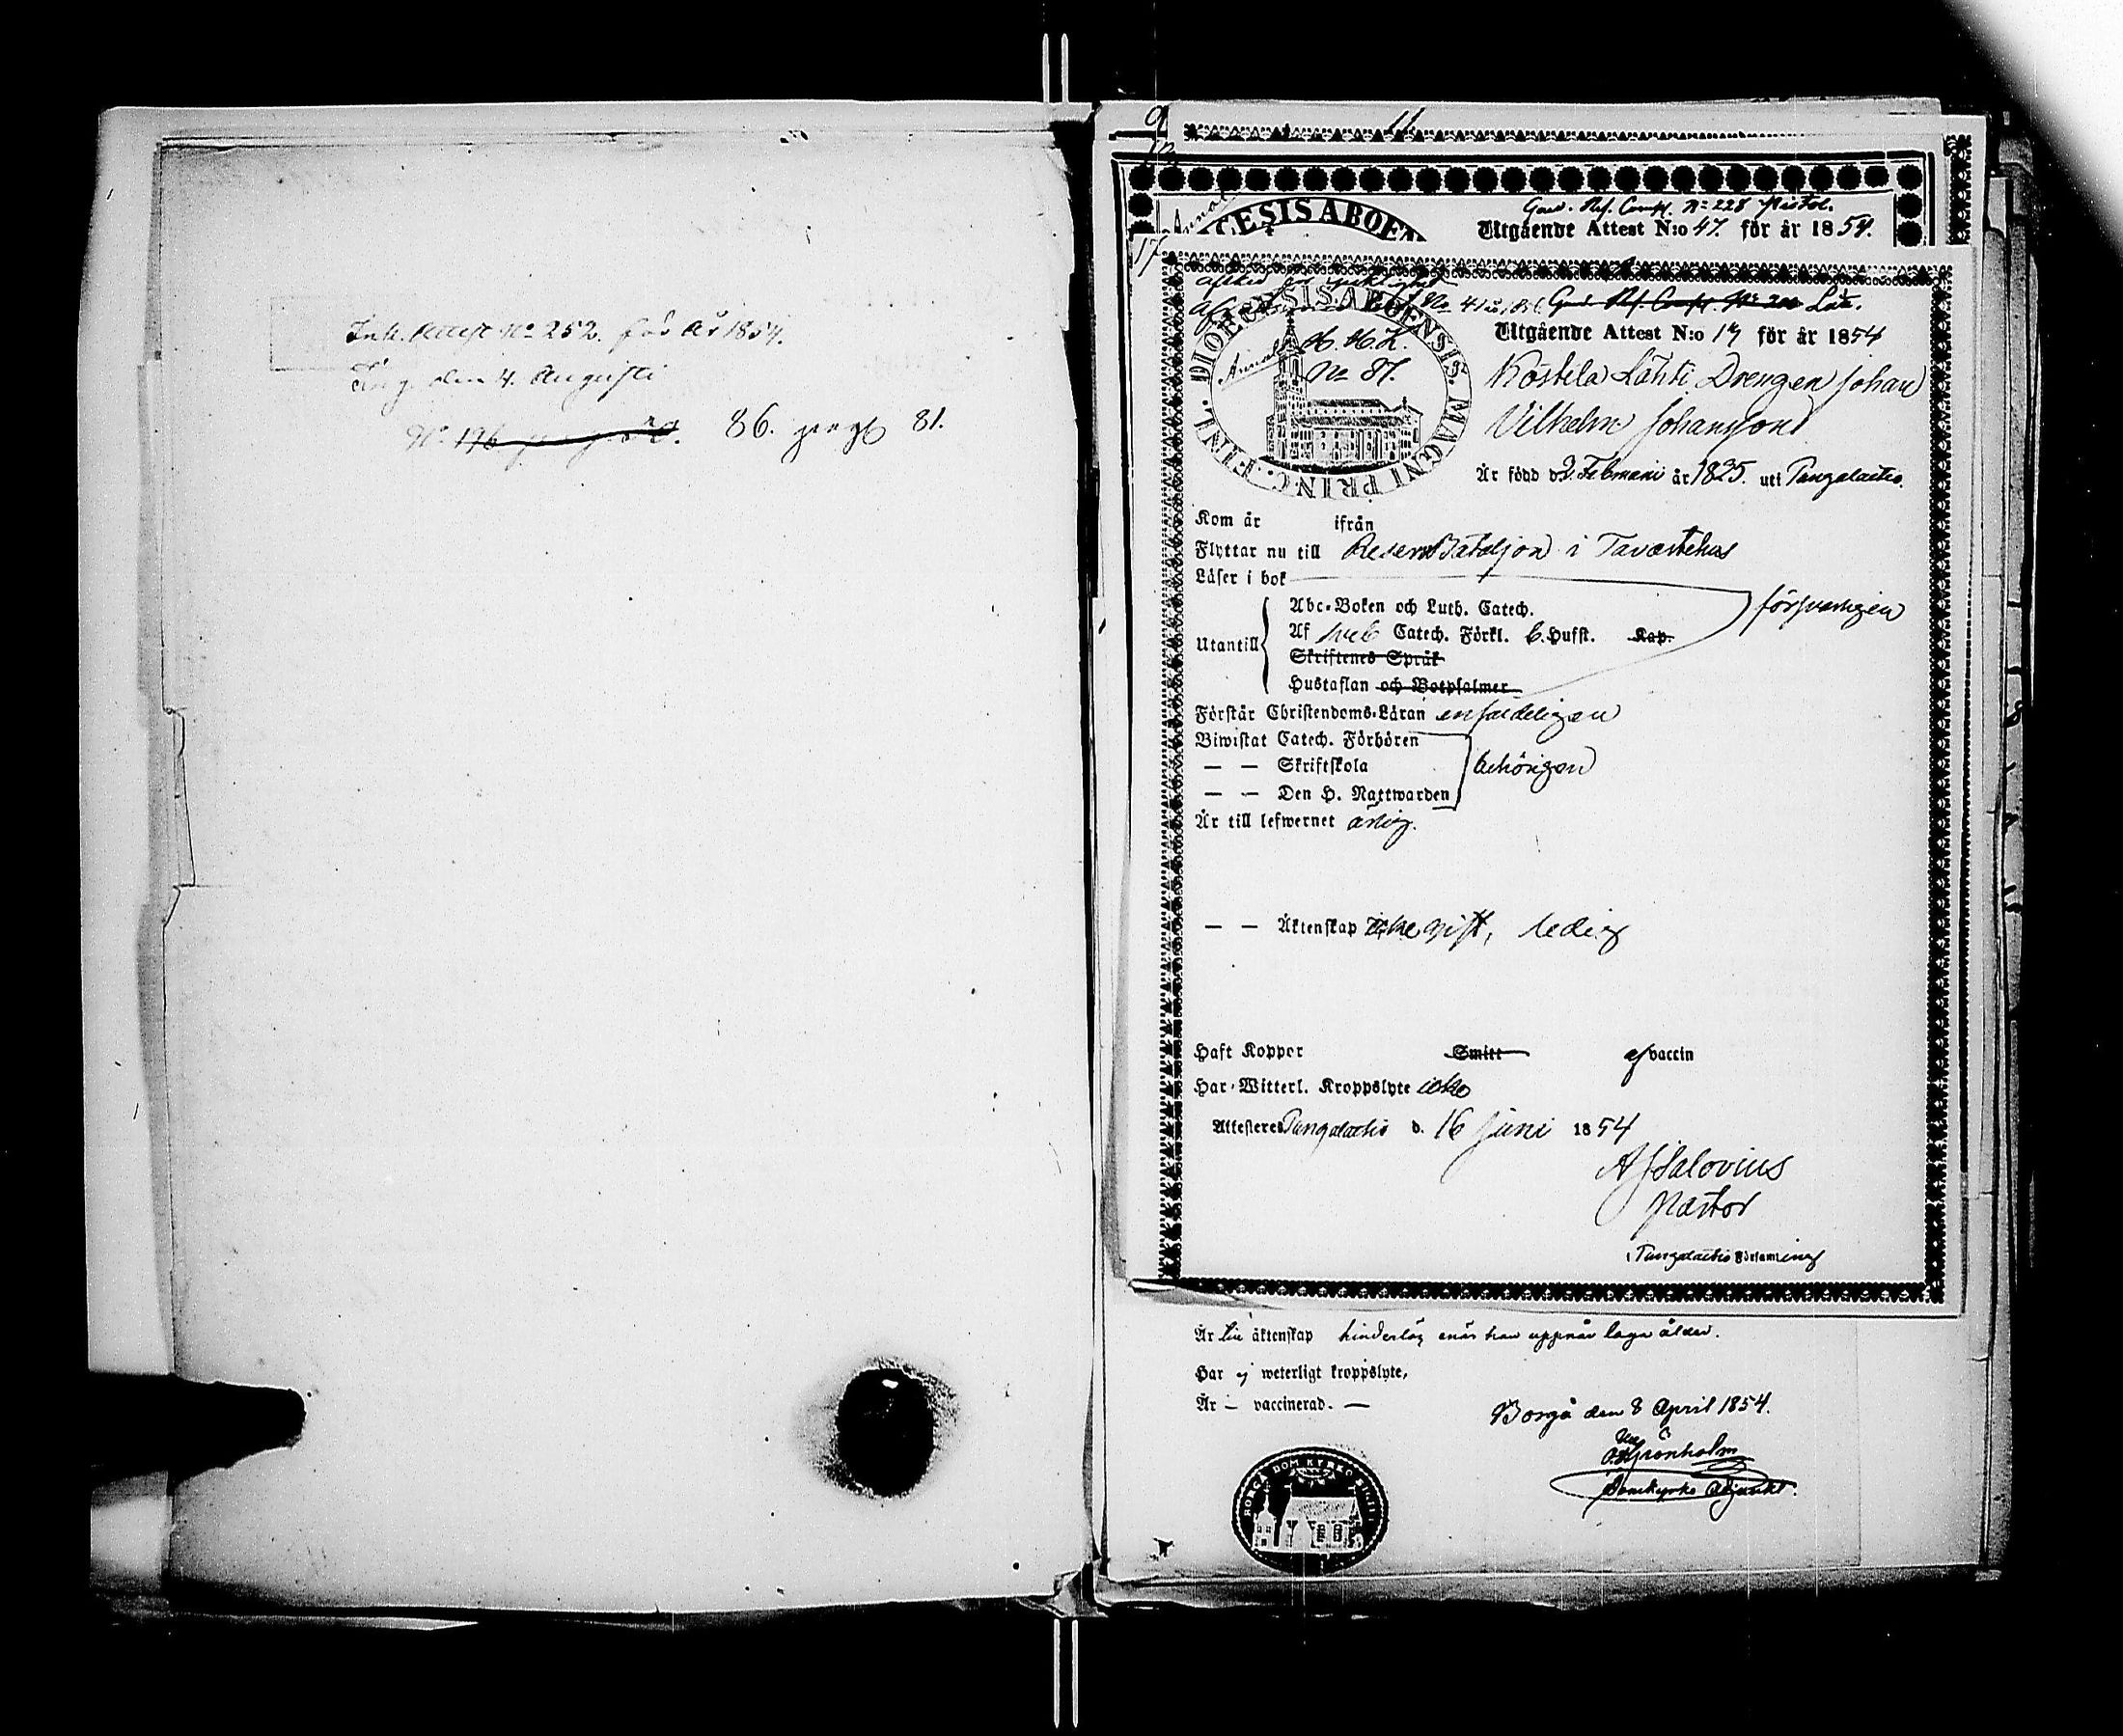 Ink. Attest No 252. för År 1854.
den 4. Augusti
No 196 86. 81.
9 11
DIOECESIS ABOEN
Utgående Attest N:o 47. för år 1854.
17
No 228
Utgående Attest N:o 17 för år 1854
DIOECESIS ABOENSIS. MAGNI PRINC. FINL.
No 87.
Köstilä Lahti Drengen Johan
Vilhelm Johansson
Är född d. 2. Februarii år 1835. uti Pungalaitio.
Kom år ifrån
Flyttar nu till Reserv Bataljon i Tavastehus
Läser i bok
Utantill
Abc-Boken och Luth. Catech.
Af Catech. Förkl. 6. Hufst. Kap.
Skriftenes Språk
Hustaflan och Botpsalmer
försvarligen
Förstår Christendoms-Läran enfaldeligen
Biwistat Catech. Förhören
— — Skriftskola
— — Den H. Nattwarden
behörigen
Är till lefwernet ärlig.
— — Äktenskap icke gift, ledig
Haft Koppor Smitt af vaccin
Har Witterl. Kroppslyte icke
Attesteres Pungalaitio d. 16 Juni 1854
A J Salovius
Pastor
i Pungalaitio Församling
Är till äktenskap hinderlös enär han uppnår laga ålder.
Har ej weterligt kroppslyte,
Är — vaccinerad. —
Borgå den 8 April 1854.
Grönholm
Domkyrko Adjunkt.
BORGÅ DOM KYRKO SIGILL